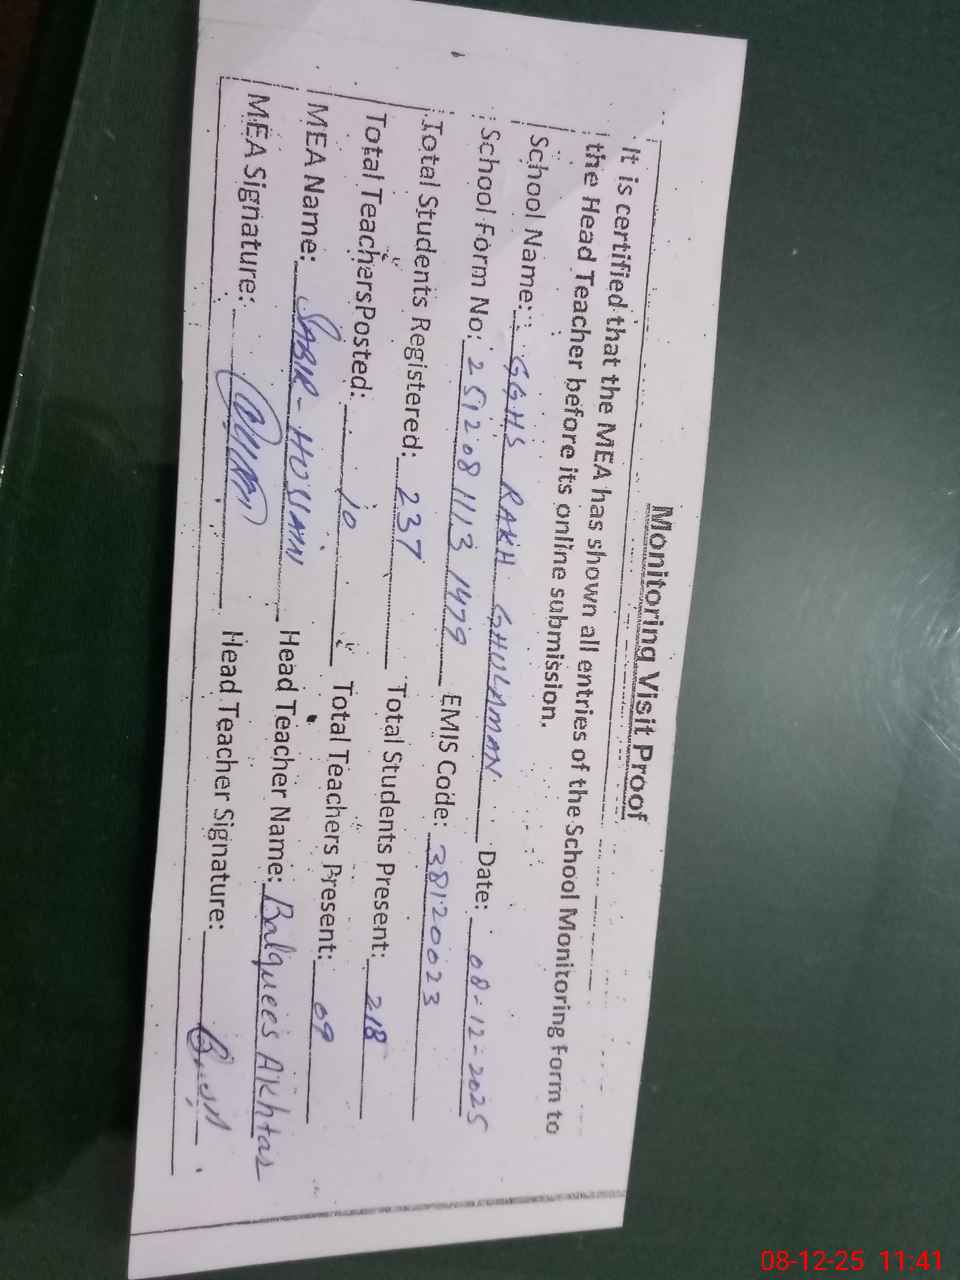 Monitoring Visit Proof
It is certified that the MEA has shown all entries of the School Monitoring Form to
the Head Teacher before its online submission.
School Name: GGHS RAKH GHULAMAN Date: 08-12-2025
School Form No: 251208 1113 1479 EMIS Code: 38120023
Total Students Registered: 237 Total Students Present: 218
Total Teachers Posted: 10 Total Teachers Present: 09
MEA Name: SABIR-HUSSAIN Head Teacher Name: Balquees Akhtar
MEA Signature: Head Teacher Signature:
08-12-25 11:41